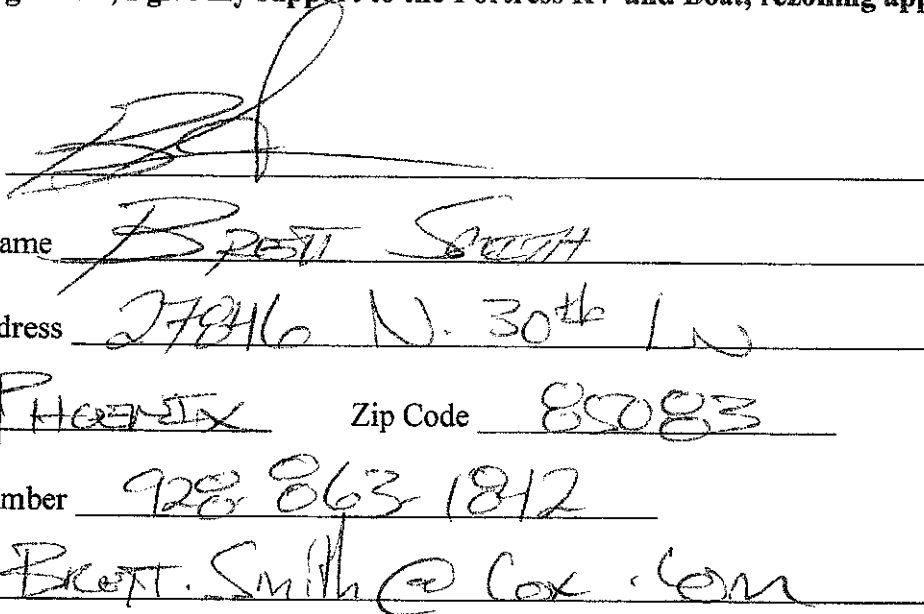 I give my support to the Fortress RV and Boat, rezoning app
ame Brett Smith
dress 27846 N. 30th LN
PHOENIX Zip Code 85083
mber 928 863 1842
Brett.Smith@Cox.Com